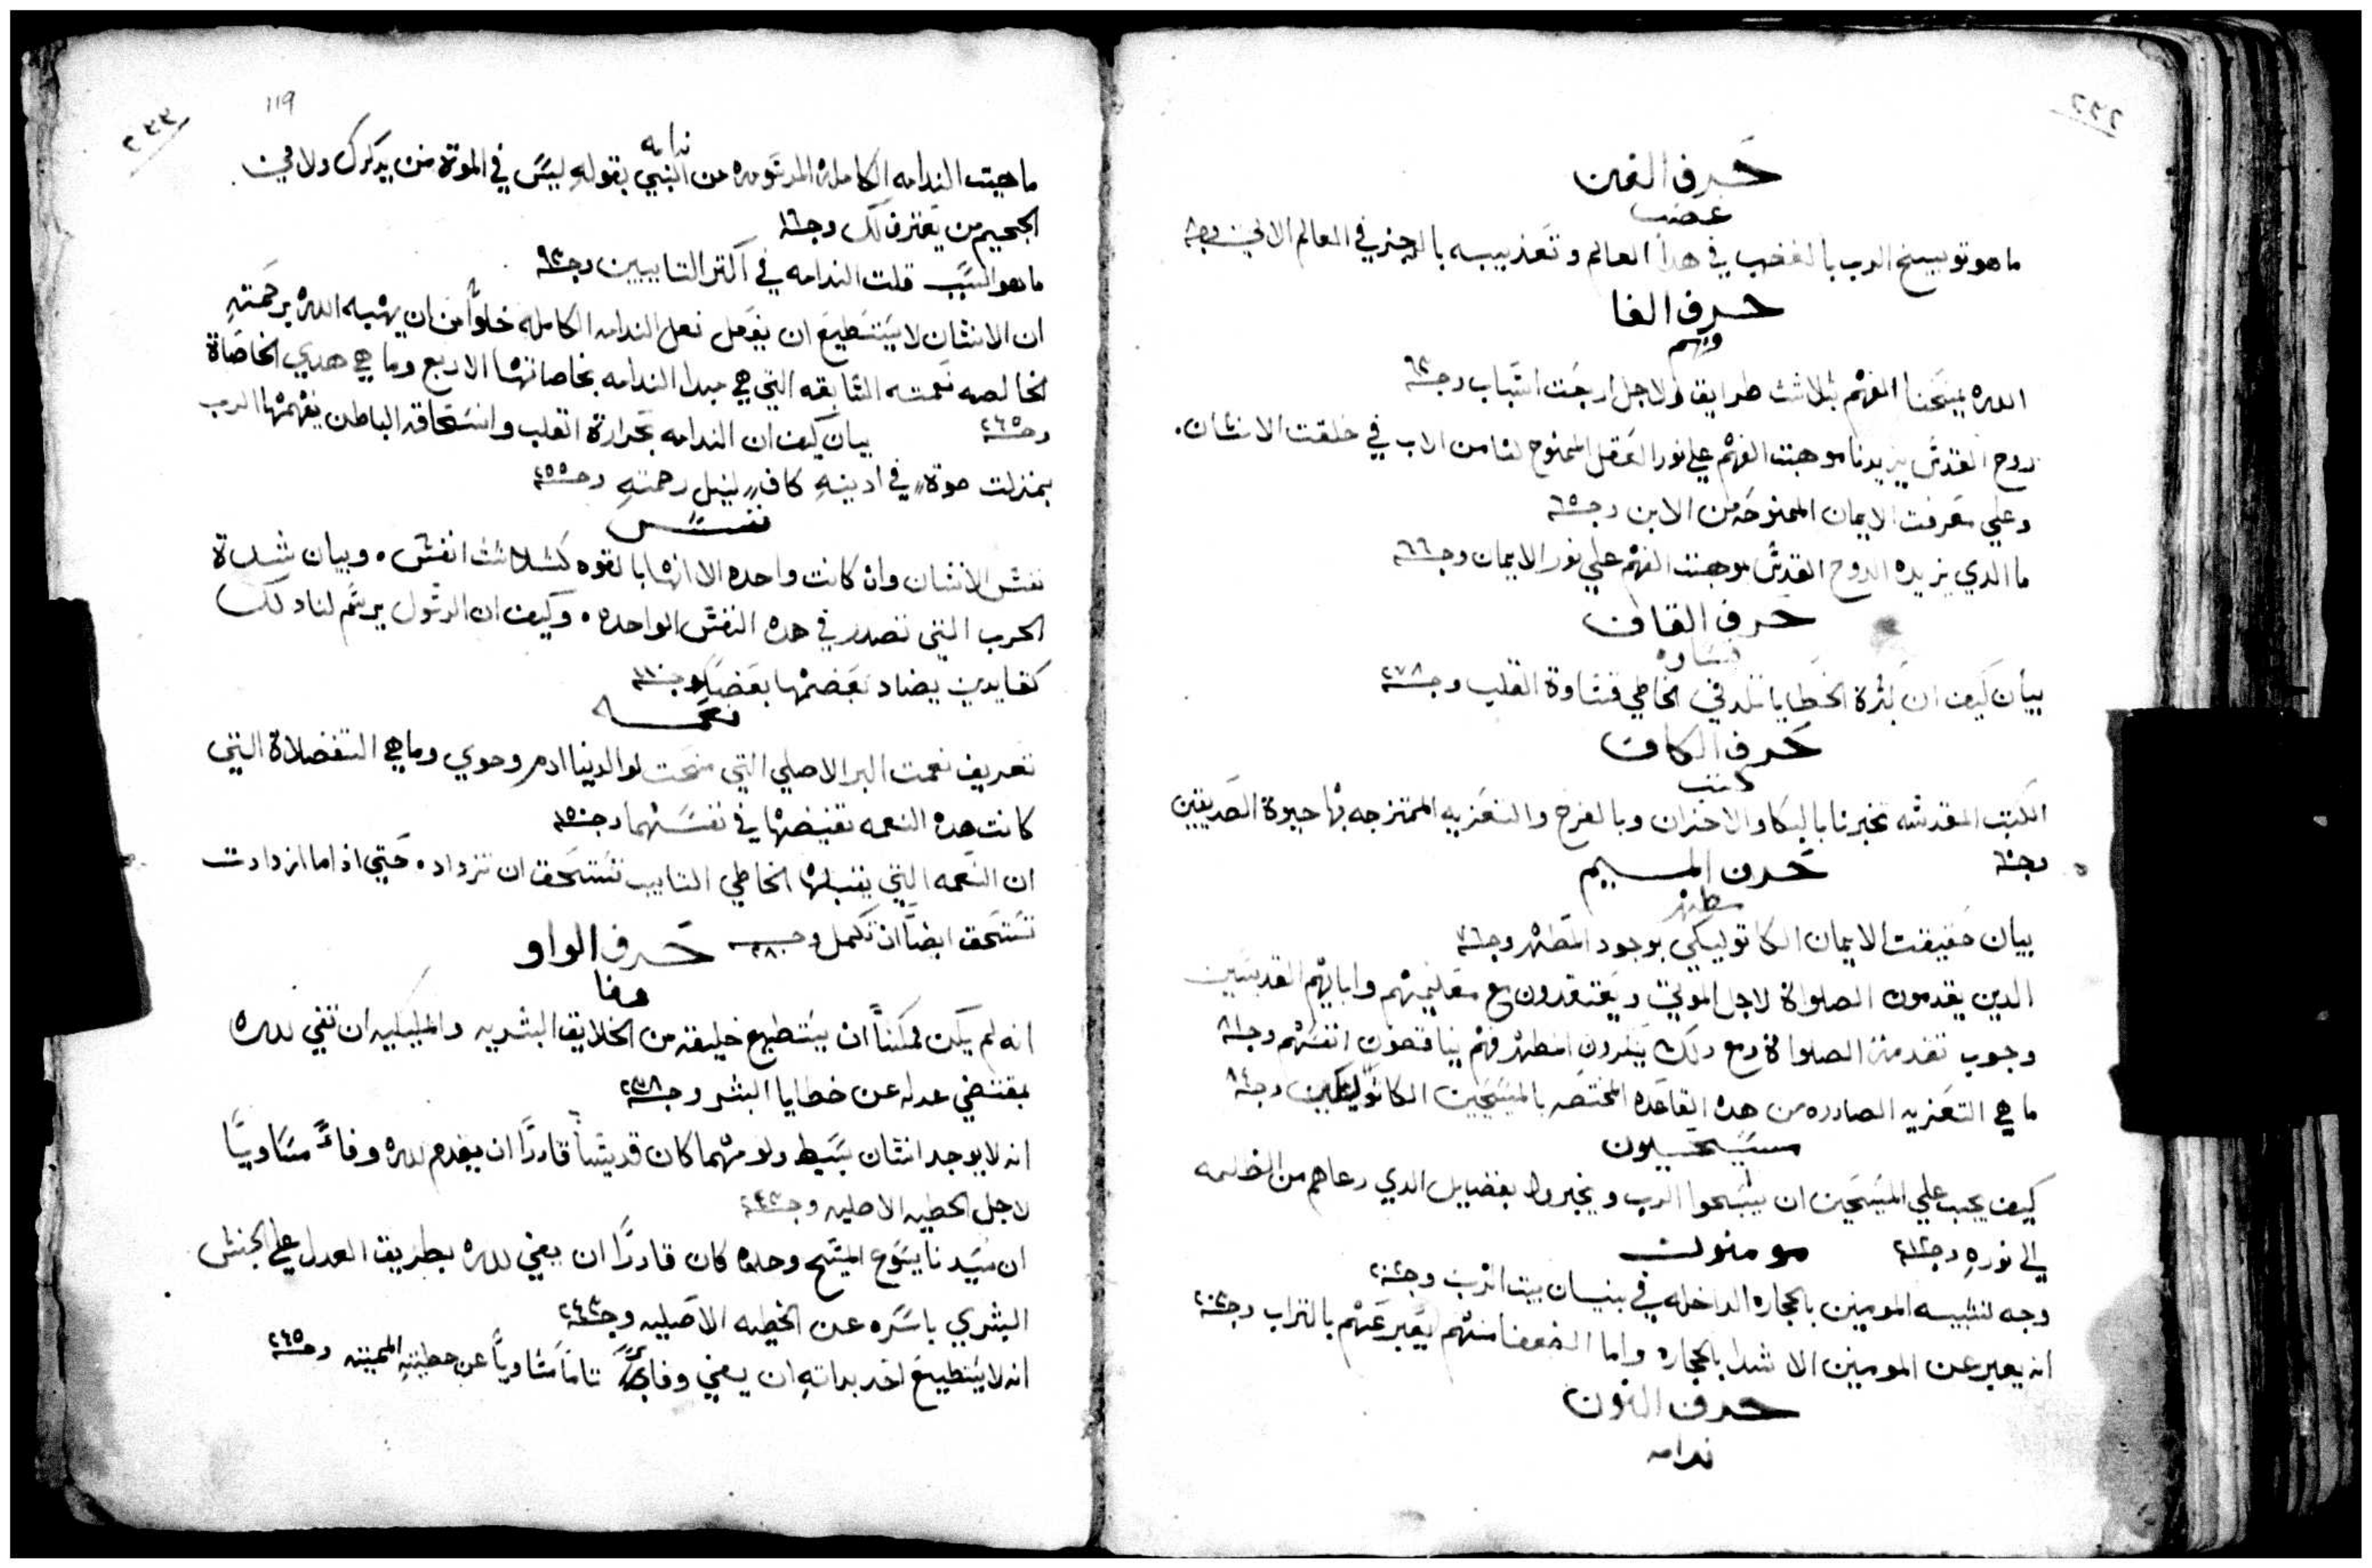 ٢٣٢
حرف الغين
غضب
ما هو توبيخ الرب بالغضب في هدا العالم و تعذيبه بالرجز في العالم الاتي وجه ٨
حرف الفا
فهم
الله يمنحنا الفهم بثلاثت طرايق ولاجل اربعت اسباب وجه ٦٣
روح القدس يزيدنا موهبت الفهم علي نور العقل الممنوح لنا من الاب في خلقت الانسان .
وعلي معرفت الايمان الممنوحه من الابن وجه ٦٥
ما الدي يزيده الروح القدس بموهبت الفهم علي نور الايمان وجه ٦٦
حرف القاف
قساوه
بيان كيف ان كثرة الخطايا تلد في الخاطي قساوة القلب وجه ٢٧٨
حرف الكاف
كتب
الكتب المقدسه تخبرنا بالبكا والاحزان وبالفرح والتعزيه الممتزجه بها حيوة الصديقين
وجه ٦٠
حرف الميم
مطهر
بيان حقيقت الايمان الكاتوليكي بوجود المطهر وجه ٧٦
الدين يقدمون الصلواة لاجل الموتي ويعتقدون مع معلميهم واباايهم القديسين
وجوب تقدمة الصلواة ومع دلك ينكرون المطهر فهم يناقضون انفسهم وجه ٨١
ما هي التعزيه الصادره من هده القاعده المختصه بالمسيحيين الكاتوليكين وجه ٨٤
مسيحيون
كيف يجب علي المسيحين ان يسبحوا الرب ويخبروا بفضايل الدي دعاهم من الظلمه
الي نوره وجه ٢١٢
مومنون
وجه تشبيه المومنين بالحجاره الداخله في بنيان بيت الرب وجه ٢٠٢
انه يعبر عن المومنين الاشدا بالحجاره واما الضعفا منهم يعبر عنهم بالتراب وجه ٢٠٣
حرف النون
ندامه
٢٣٣
119
ندامه
ماهيت الندامه الكامله المرسومه من النبي بقوله ليس في الموتة من يدكرك ولا في
الجحيم من يعترف لك وجه ١٦
ما هو السبب قلت الندامه في اكتر التايبين وجه ٩٣
ان الانسان لا يستطيع ان يفعل فعل الندامه الكامله خلوا من ان يهبه الله برحمته
الخالصه نعمته السابقه التي هي مبدا الندامه بخاصاتها الاربع وما هي هدي الخاصاة
وجه ٢٦٥ بيان كيف ان الندامه بحرارة القلب وانسحاقه الباطن يفهمها الرب
بمنزلت صوة في ادينه كاف لنيل رحمته وجه ٢٥٥
نفس
نفس الانسان وان كانت واحده الا انها بالقوه كثلاثت انفس . وبيان شدة
الحرب التي تصدر في هده النفس الواحده . وكيف ان الرسول يرسم لنا دلك
كقايدين يضاد بعضها بعضا وجه ١١٠
نعمه
تعريف نعمت البر الاصلي التي منحت لوالدينا ادم وحوي وما هي التفضلاة التي
كانت هده النعمه تفيضها في نفسهما وجه ١٥٠
ان النعمه التي يقبلها الخاطي التايب تستحق ان تزداد . حتي ادا ما ازدادت
تستحق ايضا ان تكمل وجه ٨٠ حرف الواو
وفا
انه لم يكن ممكنا ان يستطيع خليقه من الخلايق البشريه والمليكيه ان تفي لله
بمقتضي عدله عن خطايا البشر وجه ٢٣٨
انه لا يوجد انسان بسيط ولو مهما كان قديسا قادرا ان يقدم لله وفاء مساويا
لاجل الخطيه الاصليه وجه ٢٤٣
ان سيدنا يسوع المسيح وحده كان قادرا ان يفي لله بطريق العدل علي الجنس
البشري باسره عن الخطيه الاصليه وجه ٢٤٣
انه لا يستطيع احد بداته ان يفي وفاء تاما مساويا عن خطيته المميته وجه ٢٤٥